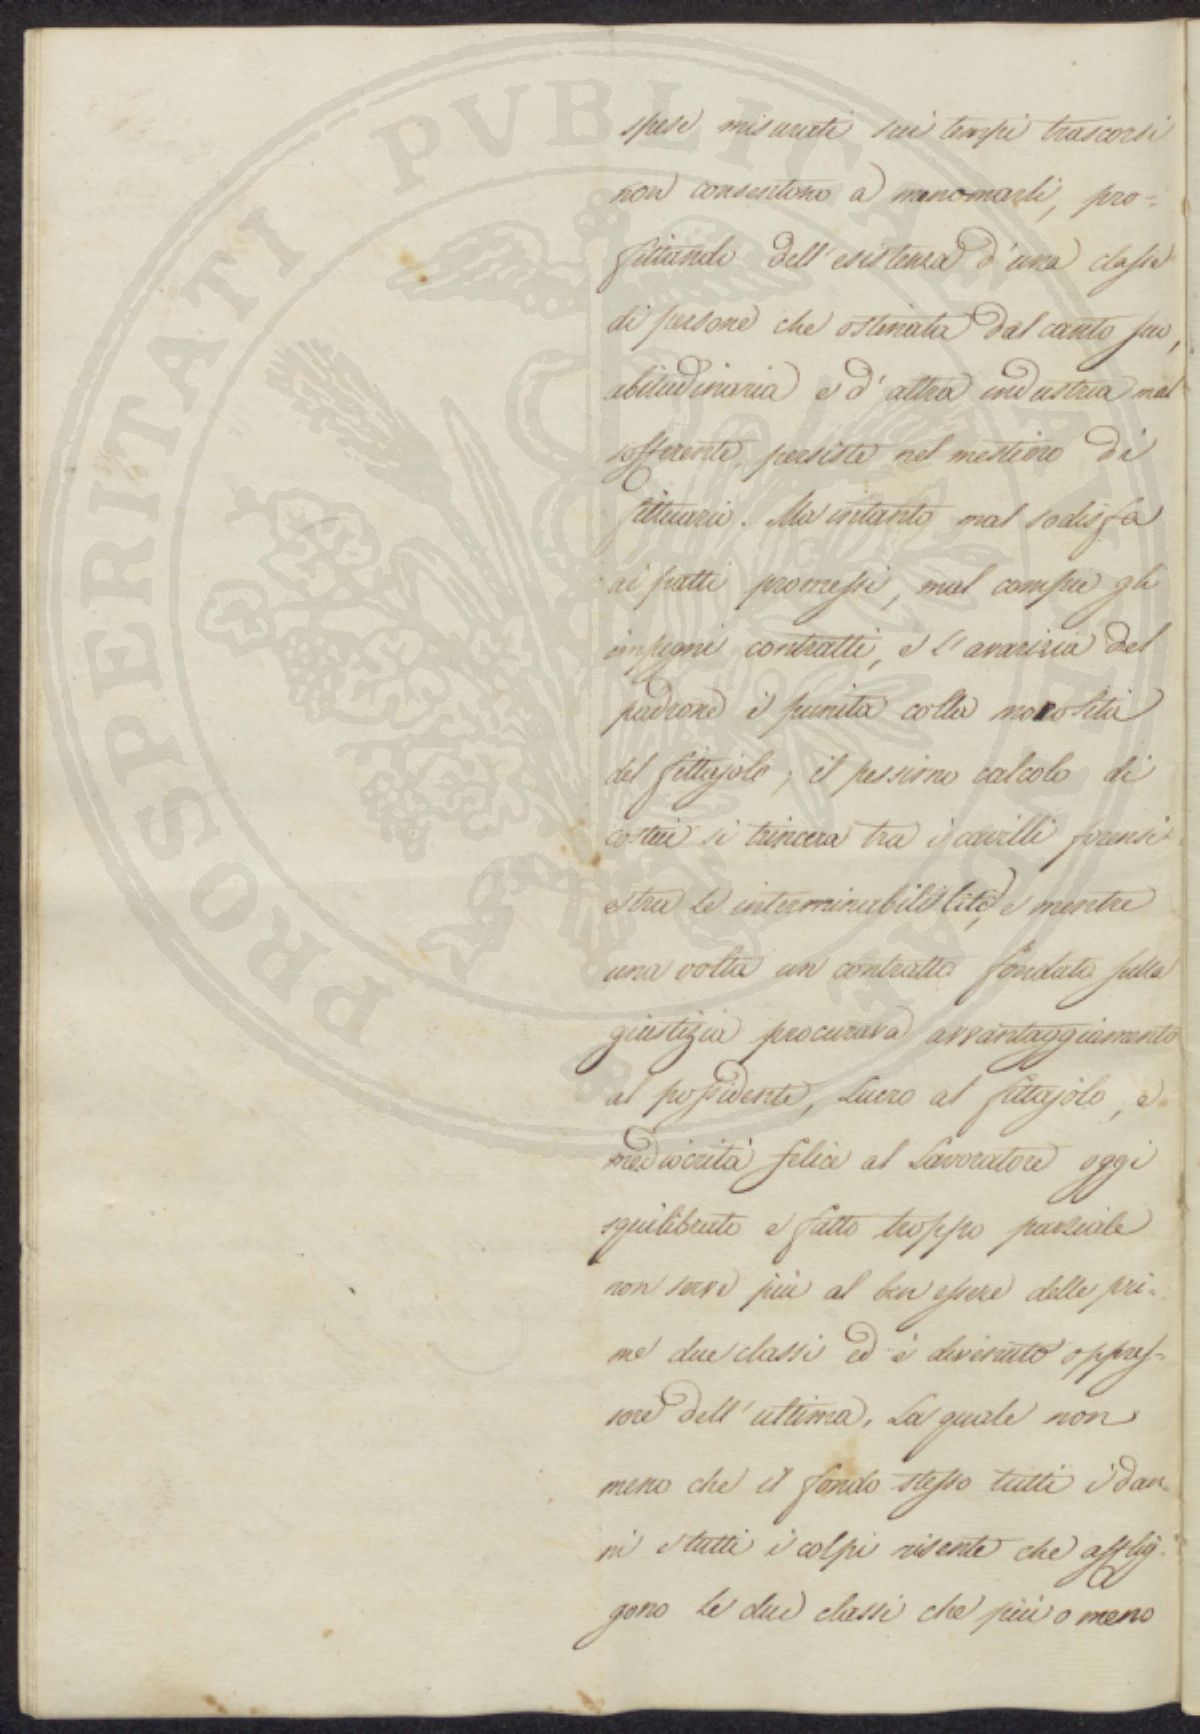 PROSPERITATI PVBLICAE AVGENDAE
spese misurati sui tempi trascorsi
non consentono a menomarli, pro-
fittando dell'esistenza d'una classe
di persone che ostinata dal canto suo,
abitudinaria e d'altra industria mal
sofferente, persiste nel mestiere di
fittuario. Ma intanto mal sodisfa
ai patti promessi, mal compie gli
impegni contratti, e l'avarizia del
padrone è punita colla morosità
del fittajolo; il pessimo calcolo di
costui si trincera tra i cavilli forensi
e tra le interminabili liti, e mentre
una volta un contratto fondato sulla
giustizia procurava avvantaggiamento
al possidente, lucro al fittajolo, e
mediocrità felice al lavoratore oggi
squilibrato e fatto troppo parziale
non serve più al ben essere delle pri-
me due classi ed è divenuto oppres-
sore dell'ultima. La quale non
meno che il fondo stesso tutti i dan-
ni e tutti i colpi risente che afflig-
gono le due classi che più o meno